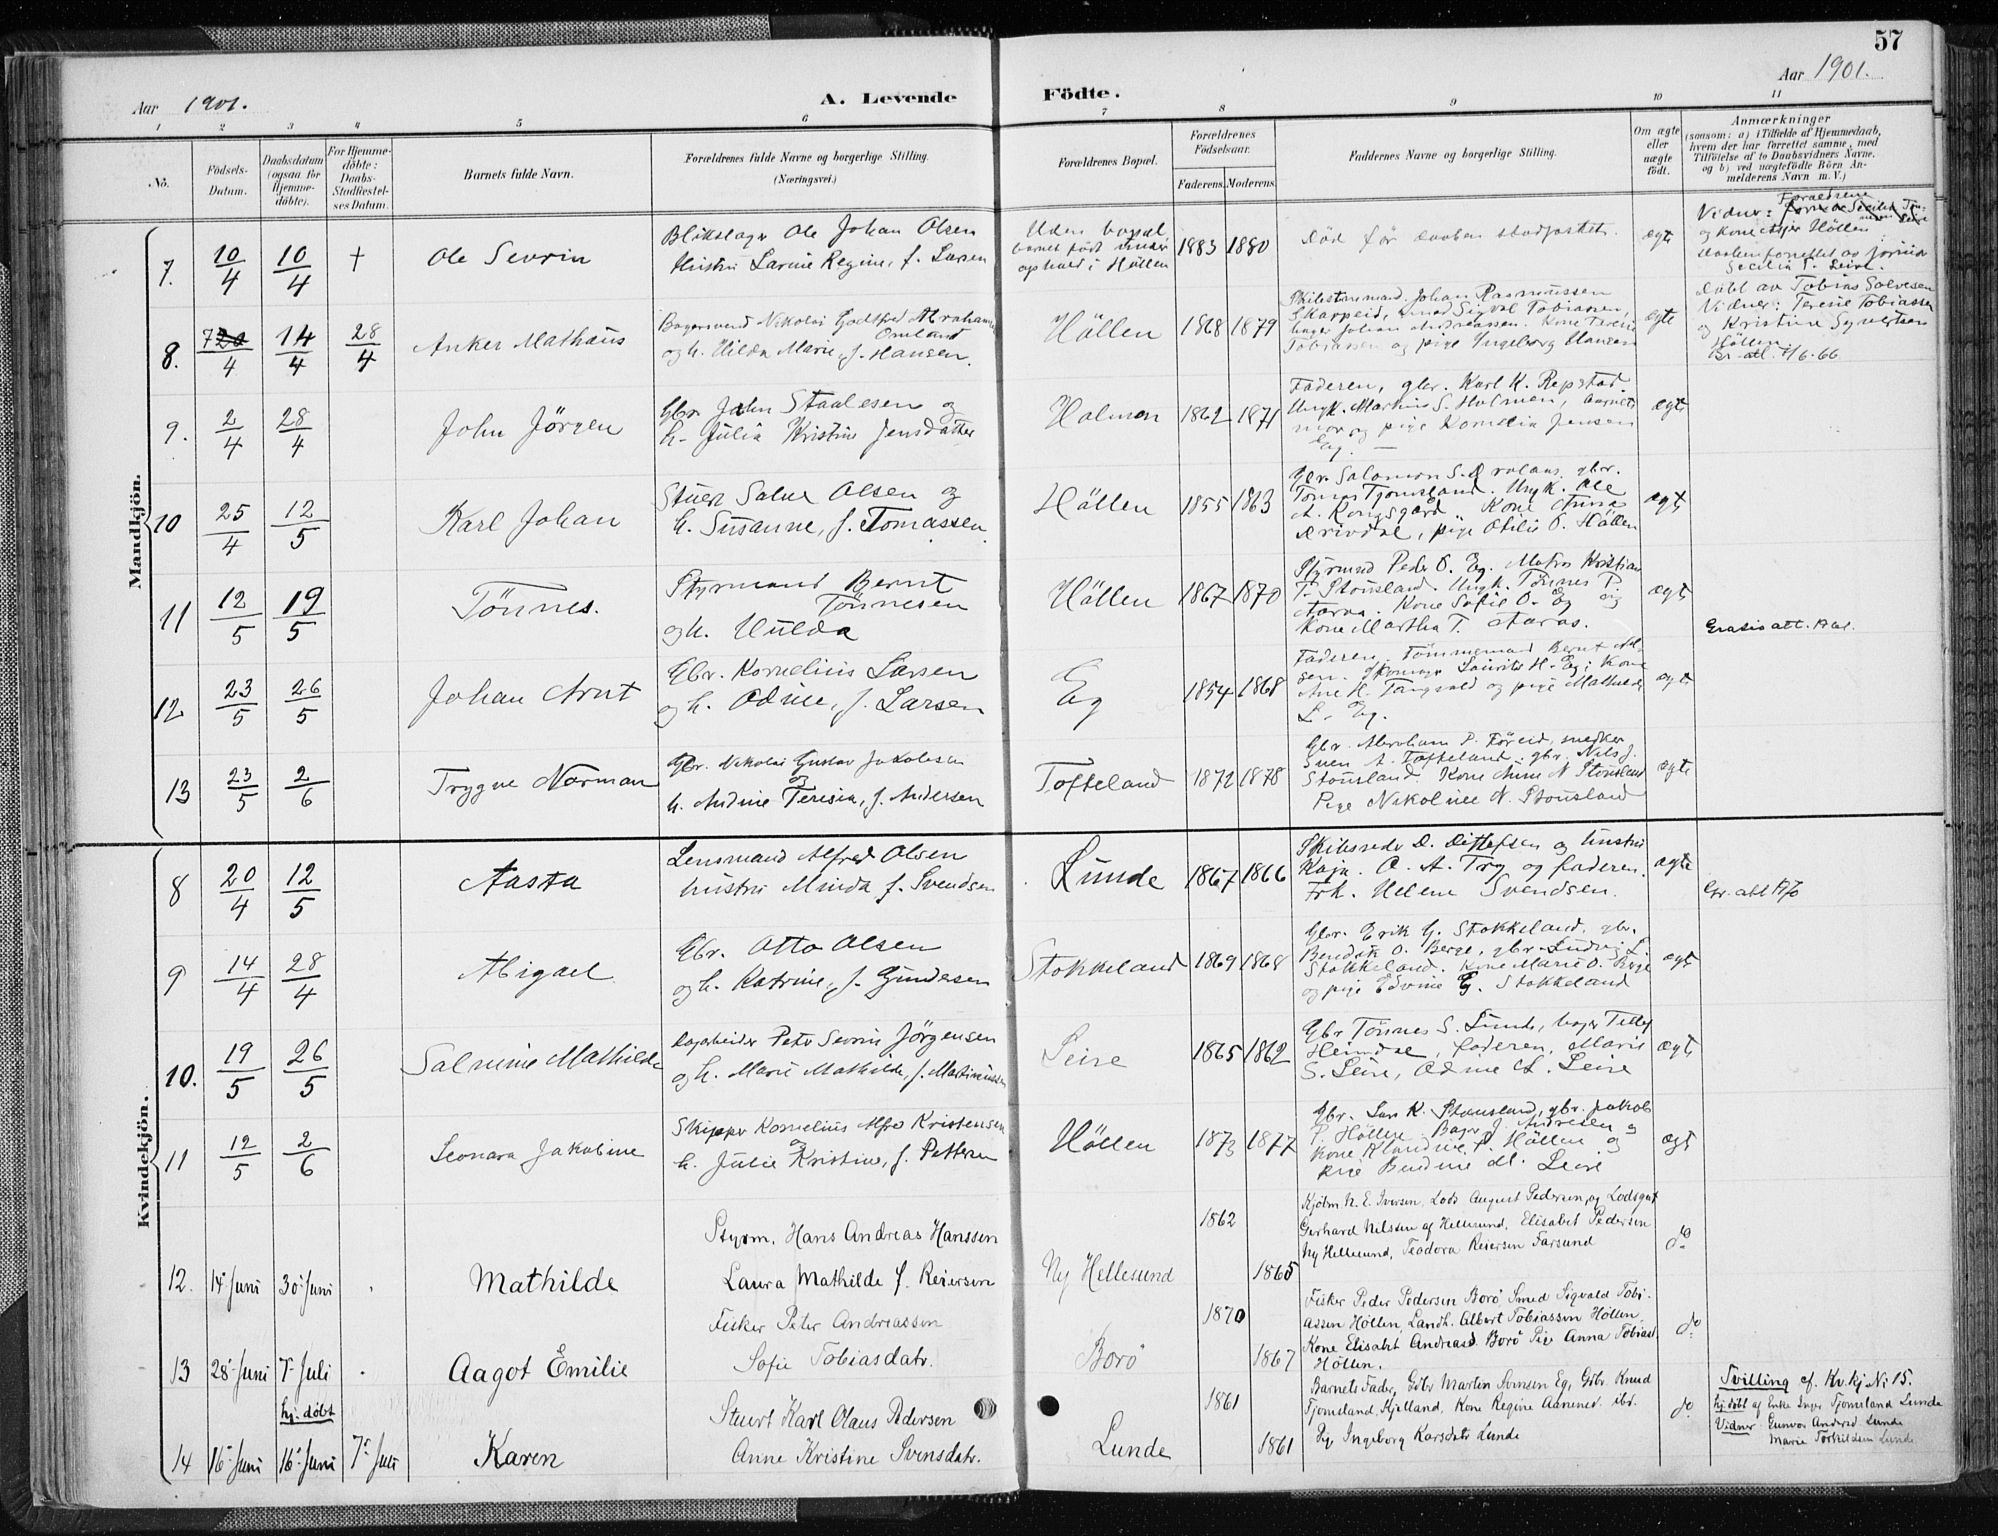 57
Aar 1901.
A. Levende Födte.
Aar 1901.
1 2 3 4 5 6 7 8 9 10 11
No.
Födsels-
Datum.
Daabsdatum
(ogsaa for
Hjemme-
döbte).
For Hjemme-
döbte:
Daabs-
Stadfæstel-
ses Datum.
Barnets fulde Navn.
Forældrenes fulde Navne og borgerlige Stilling.
(Næringsvei.)
Forældrenes Bopæl.
Forældrenes
Födselsaar.
Faderens. Moderens.
Faddernes Navne og borgerlige Stilling.
Om ægte
eller
uægte
födt.
Anmærkninger
(saasom: a) i Tilfælde af Hjemmedaab,
hvem der har forrettet samme, med
Tilföielse af to Daabsvidners Navne,
og b) ved uægtefödte Börn An-
melderens Navn m. V.)
Mandkjön.
7. 10/4 10/4 † Ole Sevrin
Blikslager Ole Johan Olsen
Hustru Larine Regine, f. Larsen
Uden bopæl
barnet født under
ophold i Höllen
1883 1880
Död før daaben stadfæstet.
ægte
Vidner: Forældrene
og kone Höllen
Daaben forrettet av
Secilia T. Leire.
8. 7/4 14/4 28/4 Anker Mathäus
Bagersvend Nikolai Godtfred Abrahamsen
Omland
og h. Hilda Marie, f. Hansen.
Höllen 1868 1879
Skibstømmand Johan Rasmussen
Skarpeid, Smed Sigval Tobiassen,
bager Johan Andreassen. Kone Terese
Tobiassen og pige Ingeborg Hansen
ægte
Döbt av Tobias Salvesen
Vidner: Terese Tobiassen
og Kristine Syvertsen
Höllen
Br. att. 1/6-66
9. 2/4 28/4 John Jörgen
Gbr. John Staalesen og
h. Julia Kristine Jensdatter
Holmen 1862 1871
Faderen, gbr. Karl K. Repstad.
Ungk. Martin S. Holmen, barnets
mor og pige Kornelia Jensen
Eg. —
ægte
10 25/4 12/5 Karl Johan
Stuert Salve Olsen og
h. Susanne, f. Tomassen.
Höllen 1855 1863
Gbr. Salomon S. gbr.
Tomas Tjomsland. Ungk. Ole
A. Kongsgård. Kone Anna
pige Otilie O. Höllen
ægt
11 12/5 19/5 Tönnes.
Styrmand Bernt
Tönnesen
og h. Hulda
Höllen 1867 1870
Styrmand Peder O. Eg. Matros Kristian
T. Stousland. Ungk. Tönnes P.
Aaros. Kone Sofie O. Eg og
Kone Martha T. Aaros.
ægt
Gratis att.
12 23/5 26/5 Johan Arnt
Gbr. Kornelius Larsen
og h. Odine, f. Larsen
Eg 1854 1868
Faderen, Tömmermand Bernt
sen. Skomager Laurits H. Eg, Kone
Ane H. Tangvald og pige Mathilde
L. Eg.
ægte
13 23/5 2/6 Trygve Norman
Gbr. Nikolai Gustav Jakobsen
og
h. Andine Teresia, f. Andersen
Tofteland 1872 1878
Gbr. Abraham P. Föreid, snedker
Sven A. Tofteland, gbr. Nils J.
Stousland. Kone Anne N. Stousland
Pige Nikoline N. Stousland
ægte
Kvindekjön.
8 20/4 12/5 Aasta
Lensmand Alfred Olsen
hustru Minda f. Svendsen
Lunde 1867 1866
Skibsreder D. Ditlefsen og hustru
Kaja. O. A. Try og faderen.
Frk. Helene Svendsen.
ægte
Gr. att.
9 14/4 28/4 Abigael
Gbr. Otto Olsen
og h. Katrine, f. Gundersen
Stokkeland 1869 1868
Gbr. Erik G. Stokkeland, gbr.
Bendik O. Berge, gbr. Ludvig L.
Stokkeland. Kone Marie O. Berge
og pige Edvine G. Stokkeland
ægt
10. 19/5 26/5 Salmine Mathilde
Dagarbeider Peter Sevrin Jörgensen
og h. Marie Mathilde, f. Martinussen
Leire 1865 1862
Gbr. Tönnes S. Lunde, bager Tellef
Heimdal, faderen, Marie
S. Leire, Odine A. Leire
ægt
11 12/5 2/6 Leonara Jakobine
Skipper Kornelius Alfred Kristensen
og
h. Julie Kristine, f. Pettersen
Höllen 1873 1877
Gbr. Lars K. Stousland, gbr. Jakob
P. Höllen, Bager J. Andresen og
kone Klandine P. Höllen og
pige Bendine M. Leire
ægt
12. 14' Juni 30' Juni Mathilde
Styrm. Hans Andreas Hanssen
Laura Mathilde f. Reiersen
Ny Hellesund 1862 1865
Kjöbm. N. E. Iversen, Lods August Pedersen, og Lodsgut
Gerhard Nilssen af Hellesund, Elisabet Pedersen
Ny Hellesund, Teodora Reiersen Farsund
do
13 28' Juni 7' Juli Aagot Emilie
Fisker Peter Andreassen
Sofie Tobiasdatr.
Borö 1870 1867
Fisker Peder Pedersen Borö Smed Sigvald Tobi-
assen Höllen, Landh. Albert Tobiassen Höllen,
Kone Elisabet Andreasd. Borö Pige Anna Tobiasd.
Höllen.
do
14 16' Juni hj. döbt 16' Juni 7' Juli Karen
Stuert Karl Olaus Pedersen
Anne Kristine Svensdatr.
Lunde 1861 1861
Barnets Fader, Gbr Martin Svensen Eg, Gbr. Knud
Tjomsland, Kjelland, Kone Regine Aanensd. ibd.
Pige Ingeborg Karsdatr Lunde
do
Tvilling cf. Kv.kj No 15.
hj. döbt af Enke Inger Tjomsland Lunde
Vidner Gunvor Andersd. Lunde
Marie Torkildsen Lunde